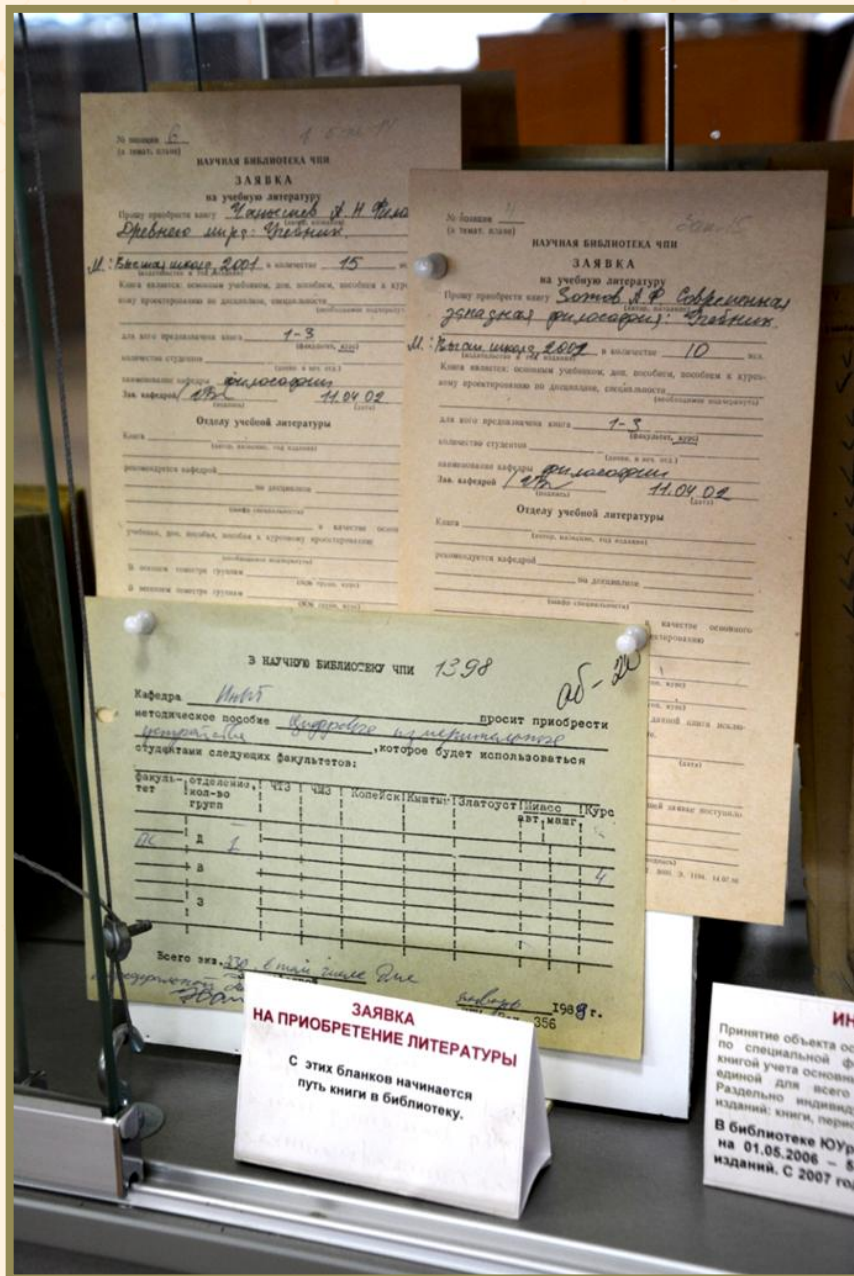 № позиции 6
(в темат. плане)
НАУЧНАЯ БИБЛИОТЕКА ЧПИ
ЗАЯВКА
на учебную литературу
Прошу приобрести книгу Чанышев А. Н. Фило
Древнего мира: Учебник.
М.: Высшая школа, 2001 в количестве 15
(издательство и год издания)
Книга является: основным учебником, доп. пособием, пособием к кур
кому проектированию по дисциплине, специальности
(необходимое подчеркнуть)
для кого предназначена книга 1-3
(факультет, курс)
количество студентов
(дневн. и веч. отд.)
наименование кафедры философии
Зав. кафедрой 11.04.02
(подпись) (дата)
Отделу учебной литературы
Книга
(автор, название, год издания)
рекомендуется кафедрой
по дисциплине
(шифр специальности)
в качестве основ
учебника, доп. пособия, пособия к курсовому проектированию
(необходимое подчеркнуть)
В осеннем семестре группам
(№№ групп, курс)
В весеннем семестре группам
(№№ групп, курс)
№ позиции 11
(в темат. плане)
НАУЧНАЯ БИБЛИОТЕКА ЧПИ
ЗАЯВКА
на учебную литературу
Прошу приобрести книгу Зотов А. Ф. Современная
(автор, название)
западная философия: Учебник.
М.: Высш. школа, 2002 в количестве 10 экз.
(издательство и год издания)
Книга является: основным учебником, доп. пособием, пособием к курсо-
вому проектированию по дисциплине, специальности
(необходимое подчеркнуть)
для кого предназначена книга 1-3
(факультет, курс)
количество студентов
(дневн. и веч. отд.)
наименование кафедры философии
Зав. кафедрой 11.04.02
(подпись) (дата)
Отделу учебной литературы
Книга
(автор, название, год издания)
рекомендуется кафедрой
по дисциплине
(шифр специальности)
качестве основного
ектированию
курс)
курс)
данной книги исклю-
(дата)
ей заявке поступило
В НАУЧНУЮ БИБЛИОТЕКУ ЧПИ 1398
аб-20
Кафедра ИнИТ просит приобрести
методическое пособие Цифровые измерительные
устройства, которое будет использоваться
студентами следующих факультетов:
факуль-тет отделение, кол-во групп ЧТЗ ЧМЗ Копейск Кыштым Златоуст Миасс авт. маш. Курс
ПС Д 1
В 4
З
Всего экз. 330, в том числе для
январь 1989 г.
356
ЗАЯВКА
НА ПРИОБРЕТЕНИЕ ЛИТЕРАТУРЫ
С этих бланков начинается
путь книги в библиотеку.
ИН
Принятие объекта ос
по специальной ф
книгой учета основны
единой для всего
Раздельно индивид
изданий: книги, перио
В библиотеке ЮУр
на 01.05.2006 – 5
изданий. С 2007 го